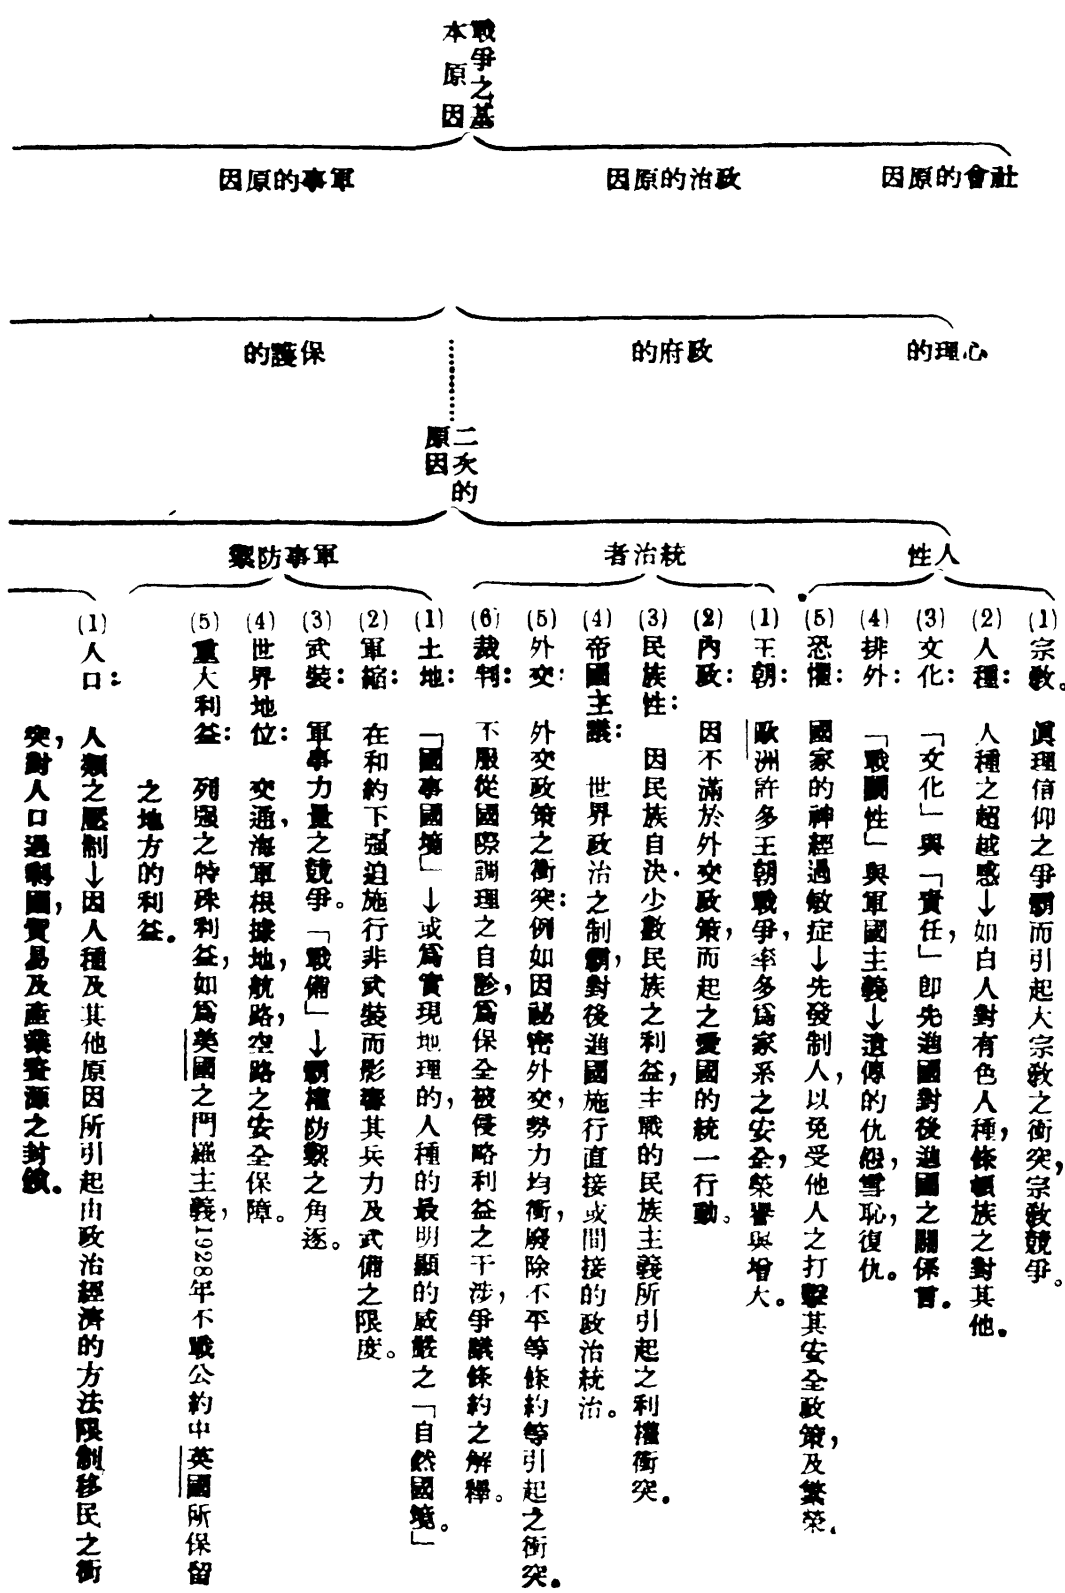 戰爭之基
本原因
社會的原因
政治的原因
軍事的原因
心理的
政府的
保護的
二次的
原因
人性
統治者
軍事防禦
(1) 宗教。 眞理信仰之爭霸而引起大宗教之衝突,宗教競爭。
(2) 人種: 人種之超越感→如白人對有色人種,條頓族之對其他。
(3) 文化: 「文化」與「責任」卽先進國對後進國之關係言。
(4) 排外: 「戰鬭性」與軍國主義→遺傳的仇怨,雪恥復仇。
(5) 恐懼: 國家的神經過敏症→先發制人,以免受他人之打擊其安全政策,及繁榮。
(1) 王朝: 歐洲許多王朝戰爭,率多爲家系之安全,榮譽與增大。
(2) 內政: 因不滿於外交政策,而起之愛國的統一行動。
(3) 民族性: 因民族自決.少數民族之利益,主戰的民族主義所引起之利權衝突。
(4) 帝國主義: 世界政治之制霸,對後進國施行直接或間接的政治統治。
(5) 外交: 外交政策之衝突:例如因祕密外交,勢力均衡,廢除不平等條約等引起之衝突。
(6) 裁判: 不服從國際調理之自診,爲保全被侵略利益之干涉,爭議條約之解釋。
(1) 土地: 「國事國境」→或爲實現地理的,人種的最明顯的威嚴之「自然國境。」
(2) 軍縮: 在和約下强迫施行非武裝而影響其兵力及武備之限度。
(3) 武裝: 軍事力量之競爭。「戰備」→霸權防禦之角逐。
(4) 世界地位: 交通,海軍根據地,航路,空路之安全保障。
(5) 重大利益: 列强之特殊利益,如爲美國之門羅主義,1928年不戰公約中英國所保留
之地方的利益。
(1) 人口: 人類之壓制→因人種及其他原因所引起由政治經濟的方法限制移民之衝
突,對人口過剩國,貿易及產業資源之封鎖。